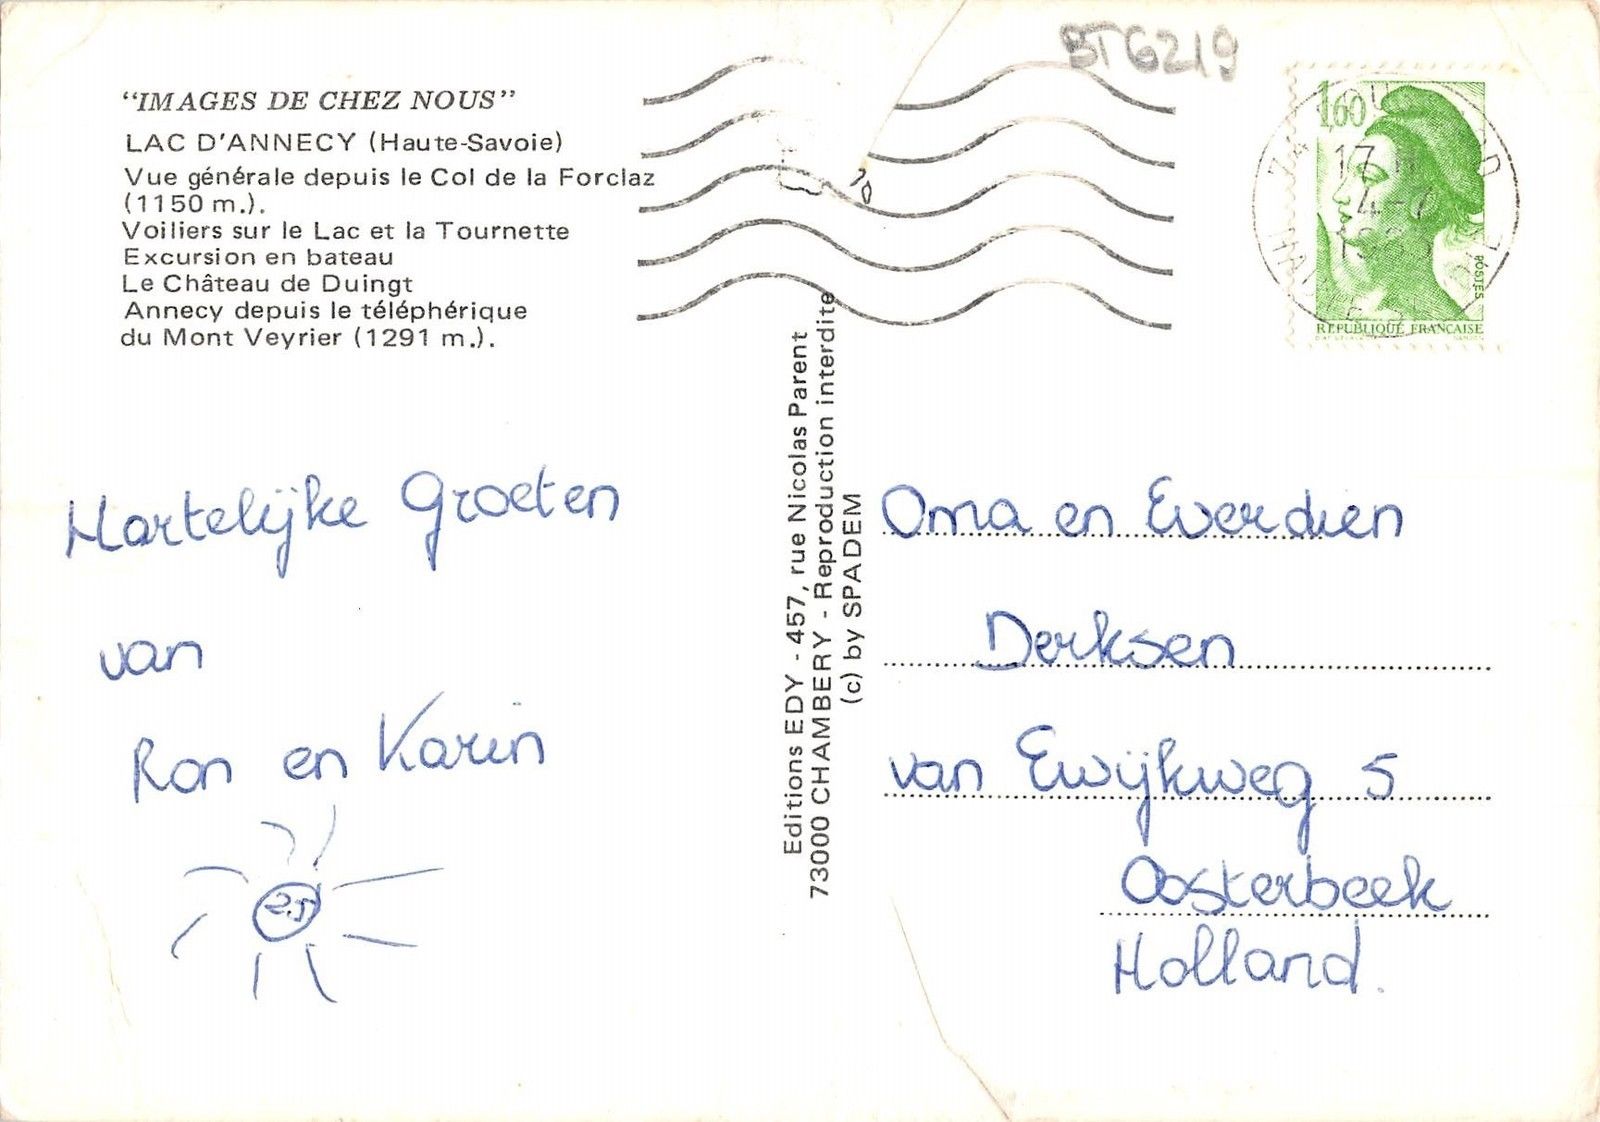 "IMAGES DE CHEZ NOUS"
LAC D'ANNECY (Haute-Savoie)
Vue générale depuis le Col de la Forclaz
(1150 m.).
Voiliers sur le Lac et la Tournette
Excursion en bateau
Le Château de Duingt
Annecy depuis le téléphérique
du Mont Veyrier (1291 m.).
BT6219
1,60
17 H
4-7
POSTES
REPUBLIQUE FRANÇAISE
Hartelijke Groeten
van
Ron en Karin
25
Editions EDY - 457, rue Nicolas Parent
73000 CHAMBERY - Reproduction interdite
(c) by SPADEM
Oma en Everdien
Derksen
van Ewijkweg 5
Oosterbeek
Holland.